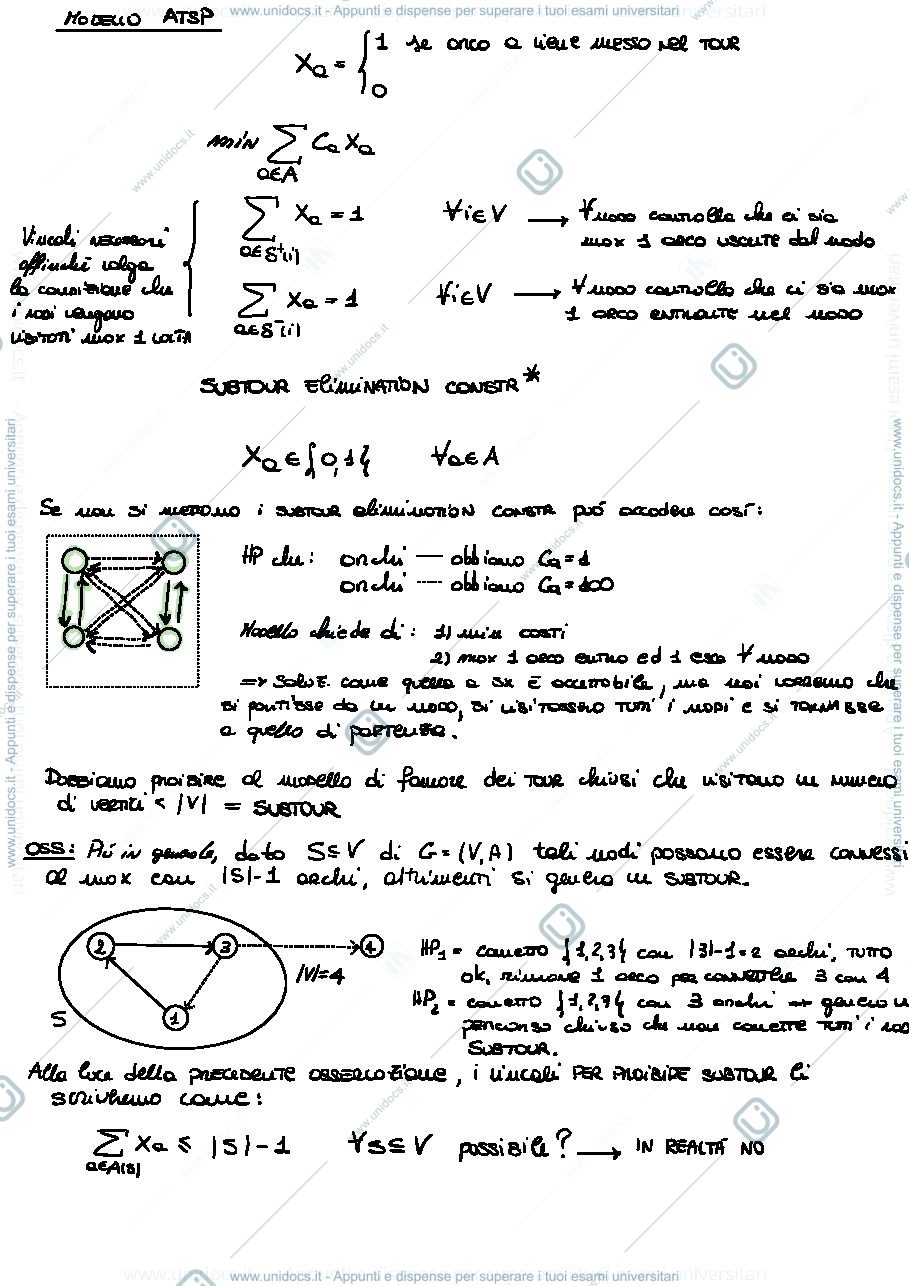 www.unidocs.it - Appunti e dispense per superare i tuoi esami universitari
MODELLO ATSP
Xa = { 1 se arco a viene messo nel TOUR
0
min Σ Ca Xa
a∈A
Vincoli necessari affinché valga la condizione che i nodi vengano visitati max 1 volta
Σ Xa = 1 ∀i∈V → ∀ nodo controlla che ci sia
a∈δ⁺(i) max 1 arco uscente dal nodo
Σ Xa = 1 ∀i∈V → ∀ nodo controllo che ci sia max
a∈δ⁻(i) 1 arco entrante nel nodo
SUBTOUR ELIMINATION CONSTR *
Xa ∈ {0,1} ∀a∈A
Se non si mettono i subtour elimination constr può accadere così:
HP che: archi — abbiano Ca = 1
archi ---- abbiano Ca = 100
Modello chiede di: 1) min costi
2) max 1 arco entro ed 1 esco ∀ nodo
=> Soluz. come quella a sx è accettabile, ma noi vorremo che
si partisse da un nodo, si visitassero tutti i nodi e si tornasse
a quello di partenza.
Dobbiamo proibire al modello di famore dei tour chiusi che visitano un numero
di vertici < |V| = SUBTOUR
OSS: Più in generale, dato S⊆V di G=(V,A) tali nodi possono essere connessi
al max con |S|-1 archi, altrimenti si genera un SUBTOUR.
2 3 4
|V|=4
1
S
HP1 = connetto {1,2,3} con |3|-1=2 archi, tutto
ok, rimane 1 arco per connettere 3 con 4
HP2 = connetto {1,2,3} con 3 archi => genero
percorso chiuso che non connette tutti i
SUBTOUR.
Alla luce della precedente osservazione, i vincoli PER PROIBIRE SUBTOUR li
scriviremo come:
Σ Xa ≤ |S|-1 ∀S⊆V possibile? → IN REALTÀ NO
a∈A(S)
www.unidocs.it - Appunti e dispense per superare i tuoi esami universitari